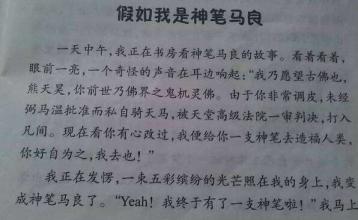 假如我是神笔马良
一天中午,我正在书房看神笔马良的故事。看着看着,
眼前一亮,一个奇怪的声音在耳边响起:“我乃愿望古佛也,
熊天昊,你前世乃佛界之鬼机灵佛。由于你非常调皮,未经
弼马温批准而私自骑天马,被天堂高级法院一审判决,打入
凡间。现在看你有心改过,我便给你一支神笔去造福人类,
你好自为之,我去也!”
我正在发愣,一束五彩缤纷的光芒照在我的身上,我变
成神笔马良了。“Yeah!我终于有了一支神笔啦!”我马上